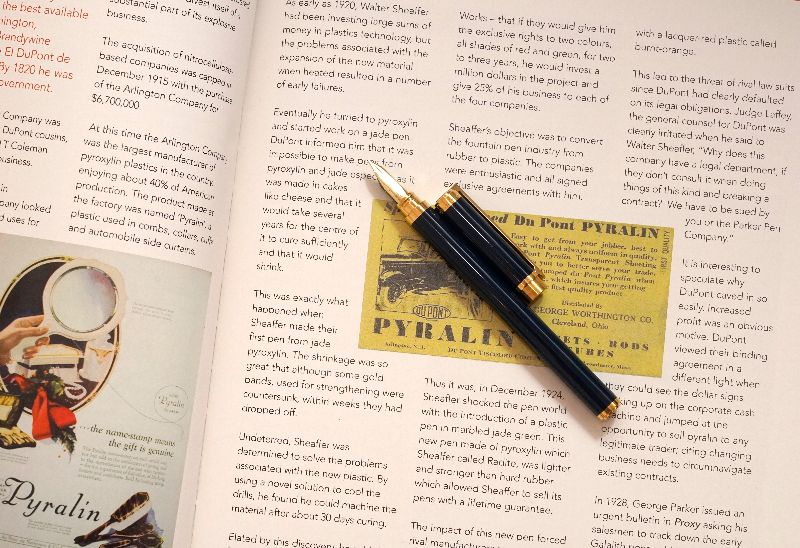 the best available
mington,
Brandywine
e El DuPont de
By 1820 he was
overnment.
Company was
DuPont cousins,
T Coleman
business.
in
pany looked
d uses for
substantial part of its explosive
business.
The acquisition of nitrocellulose-
based companies was capped in
December 1915 with the purchase
of the Arlington Company for
$6,700,000.
At this time the Arlington Company
was the largest manufacturer of
pyroxylin plastics in the country,
enjoying about 40% of American
production. The product made at
the factory was named 'Pyralin', a
plastic used in combs, collars, cuffs
and automobile side curtains.
Pyralin
...the name-stamp means
the gift is genuine
Pyralin
As early as 1920, Walter Sheaffer
had been investing large sums of
money in plastics technology, but
the problems associated with the
expansion of the new material
when heated resulted in a number
of early failures.
Eventually he turned to pyroxylin
and started work on a jade pen.
DuPont informed him that it was
impossible to make pens from
pyroxylin and jade as it
was made in cakes
like cheese and that it
would take several
years for the centre of
it to cure sufficiently
and that it would
shrink.
This was exactly what
happened when
Sheaffer made their
first pen from jade
pyroxylin. The shrinkage was so
great that although some gold
bands, used for strengthening were
countersunk, within weeks they had
dropped off.
Undeterred, Sheaffer was
determined to solve the problems
associated with the new plastic. By
using a novel solution to cool the
drills, he found he could machine the
material after about 30 days curing.
Elated by this discovery
Works – that if they would give him
the exclusive rights to two colours,
all shades of red and green, for two
to three years, he would invest a
million dollars in the project and
give 25% of his business to each of
the four companies.
Sheaffer's objective was to convert
the fountain pen industry from
rubber to plastic. The companies
were enthusiastic and all signed
exclusive agreements with him.
ed Du Pont PYRALIN
Easy to get from your jobber, best to
work with and always uniform in quality.
Pont Pyralin Transparent Sheeting
you to better serve your trade.
Stamped du Pont Pyralin when
, which insures your getting
first quality product
FIRST QUALITY
Distributed By
GEORGE WORTHINGTON CO.
Cleveland, Ohio
DUPONT
PYRALIN
SHEETS - RODS
TUBES
Arlington, N. J.
DU PONT VISCOLOID COMPANY
Leominster, Mass.
Thus it was, in December 1924,
Sheaffer shocked the pen world
with the introduction of a plastic
pen in marbled jade green. This
new pen made of pyroxylin which
Sheaffer called Radite, was lighter
and stronger than hard rubber
which allowed Sheaffer to sell its
pens with a lifetime guarantee.
The impact of this new pen forced
rival manufacturers
with a lacquer-red plastic called
burnt-orange.
This led to the threat of rival law suits
since DuPont had clearly defaulted
on its legal obligations. Judge Laffey,
the general counsel for DuPont was
clearly irritated when he said to
Walter Sheaffer, "Why does this
company have a legal department, if
they don't consult it when doing
things of this kind and breaking a
contract? We have to be sued by
you or the Parker Pen
Company."
It is interesting to
speculate why
DuPont caved in so
easily. Increased
profit was an obvious
motive. DuPont
viewed their binding
agreement in a
different light when
they could see the dollar signs
racking up on the corporate cash
machine and jumped at the
opportunity to sell pyralin to any
legitimate trader; citing changing
business needs to circumnavigate
existing contracts.
In 1928, George Parker issued an
urgent bulletin in Proxy asking his
salesmen to track down the early